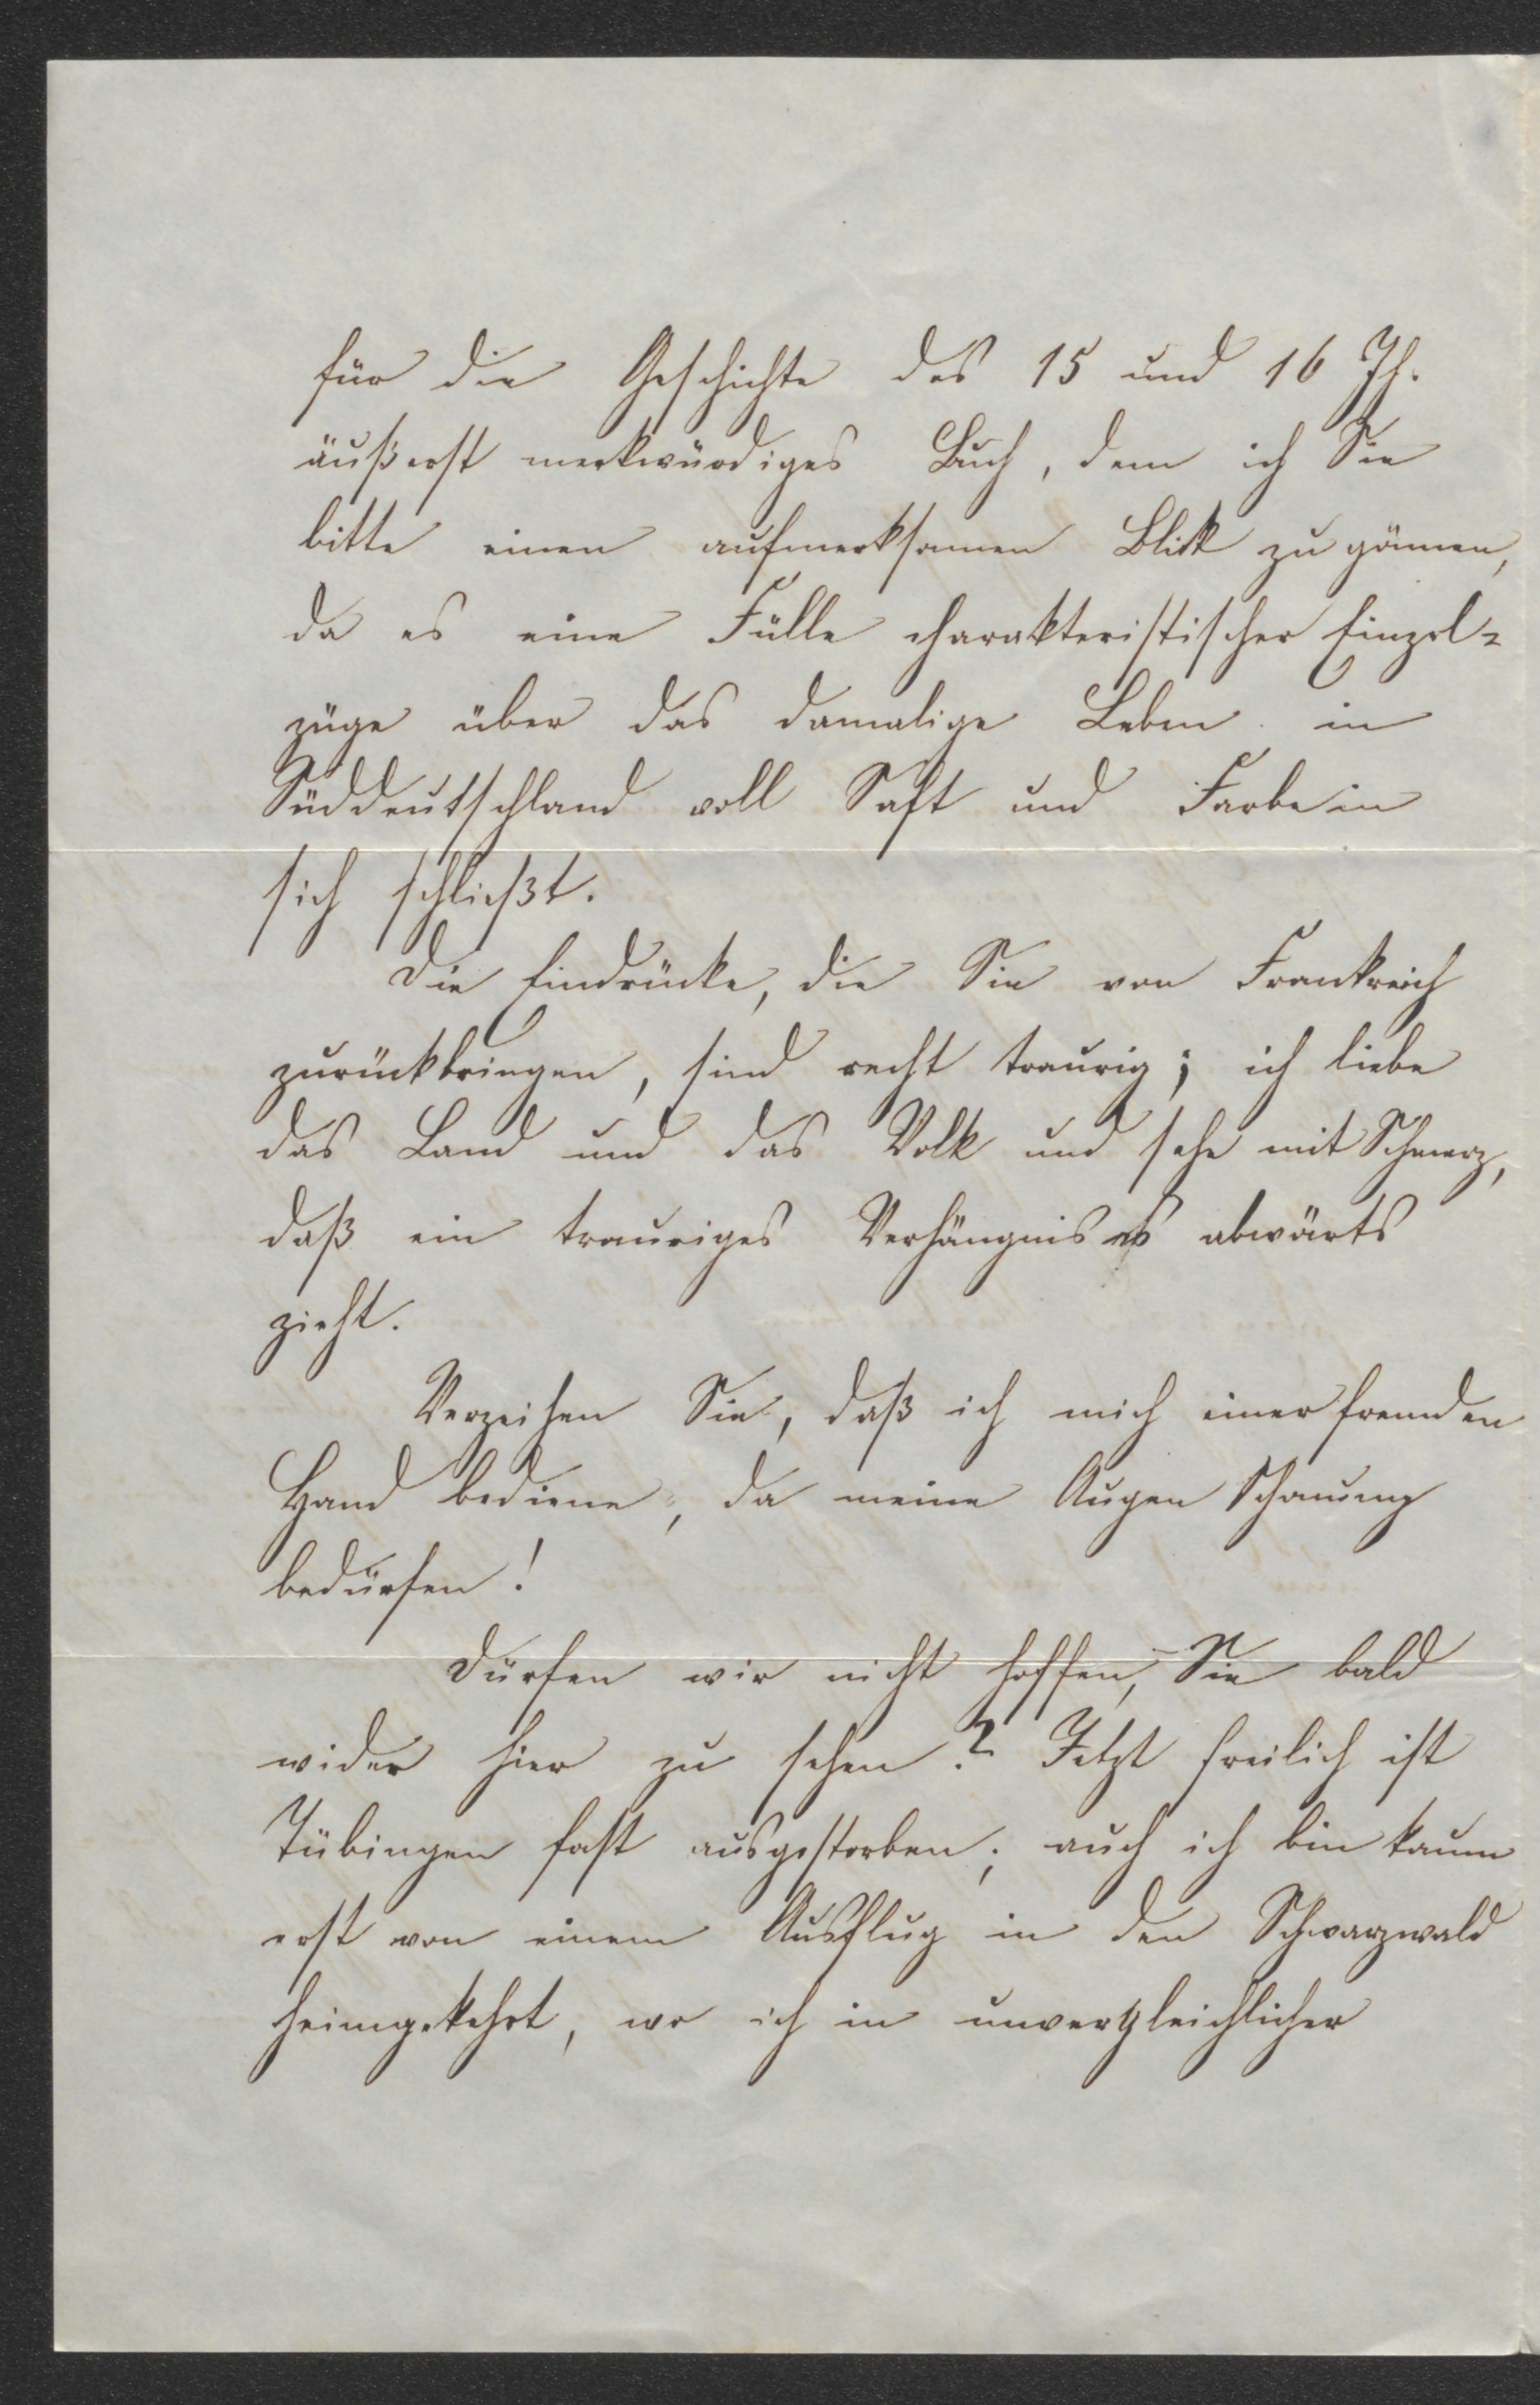 für die Geschichte des 15 und 16 Jh.
äußerst merkwürdiges Buch, dem ich Sie
bitte einen aufmerksamen Blick zu gönnen,
da es eine Fülle charakteristischer Einzel-
züge über das damalige Leben in
Süddeutschland voll Saft und Farbe in
sich schließt.
Die Eindrücke, die Sie von Frankreich
zurückbringen, sind recht traurig; ich liebe
das Land und das Volk und sehe mit Schmerz,
daß ein trauriges Verhängnis es abwärts
zieht.
Verzeihen Sie, daß ich mich einer fremden
Hand bediene, da meine Augen Schonung
bedürfen!
Dürfen wir nicht hoffen, Sie bald
wider hier zu sehen? Jetzt freilich ist
Tübingen fast ausgestorben; auch ich bin kaum
erst von einem Ausflug in den Schwarzwald
heimgekehrt, wo ich in unvergleichlicher